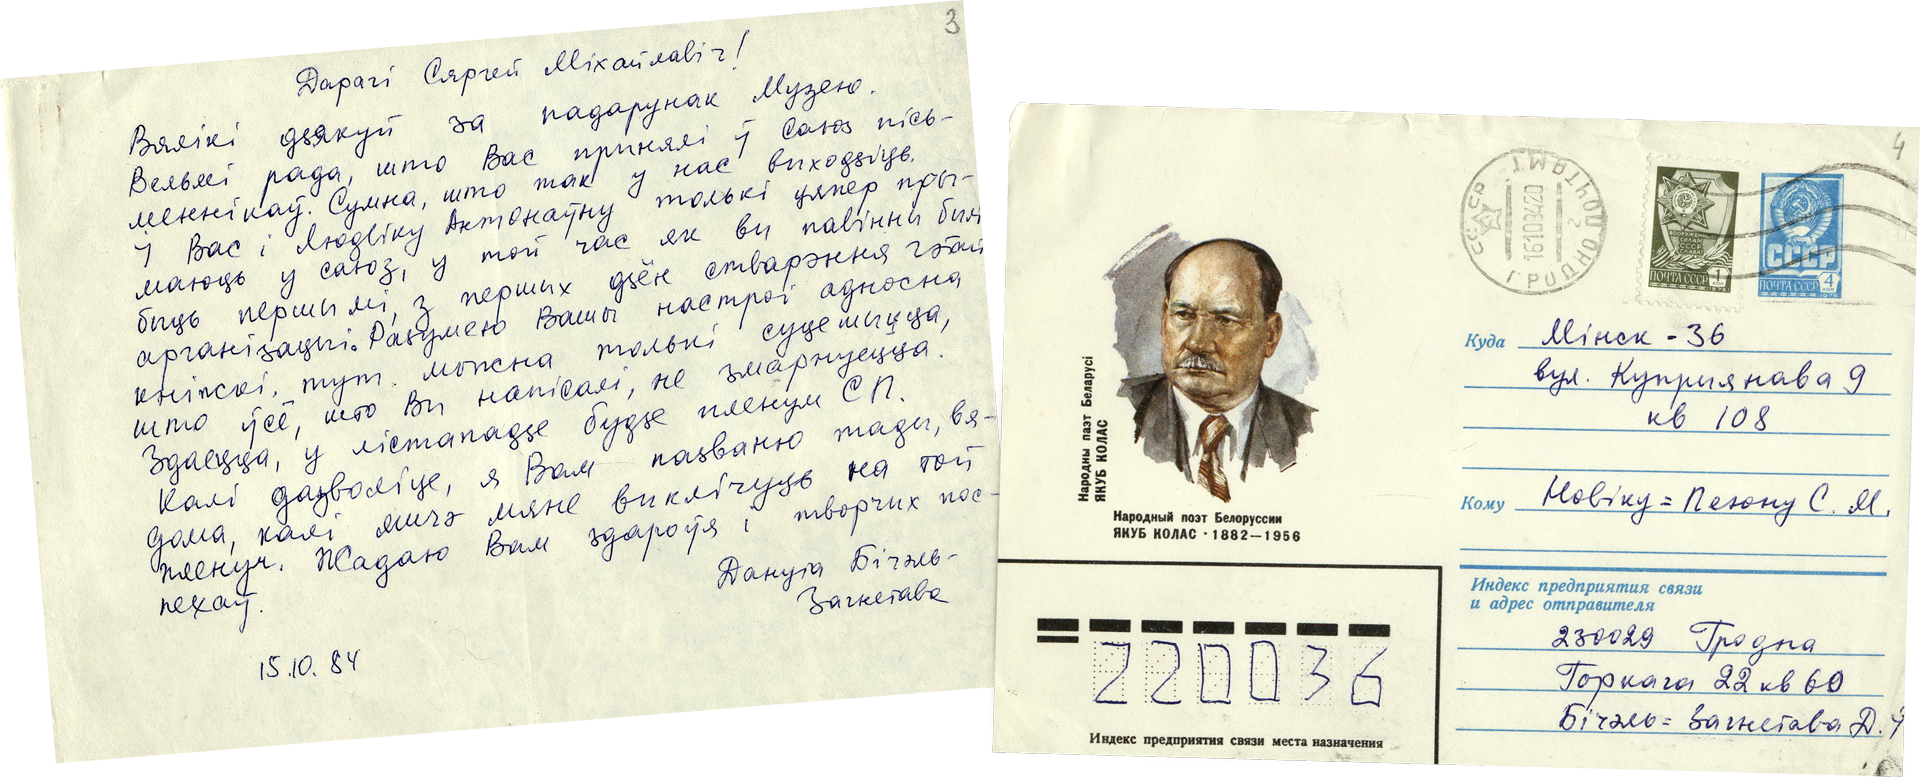 3
Дарагі Сяргей Міхайлавіч!
Вялікі дзякуй за падарунак Музею.
Вельмі рада, што Вас прынялі ў Саюз пісь-
меннікаў. Сумна, што так у нас выходзіць.
І Вас і Людвіку Антонаўну толькі цяпер пры-
маюць у саюз, у той час як вы павінны былі
быць першымі, з першых дзён стварэння гэтай
арганізацыі. Разумею Вашы настроі адносна
кніжкі, тут можна толькі суцешыцца,
што ўсё, што Вы напісалі, не змарнуецца.
Здаецца, у лістападзе будзе пленум СП.
Калі дазволіце, я Вам пазваню тады, вя-
дома, калі яшчэ мяне выклічуць на той
пленум. Жадаю Вам здароўя і творчых пос-
пехаў.
Данута Бічэль-
Загнетава
15.10.84
4
СССР ПОЧТАМТ
161084 20
Г. РОДНО
ВООРУЖЕННЫМ СИЛАМ СССР
ПОЧТА СССР 1 КОП 1976
СССР
ПОЧТА СССР 4 КОП 1976
Народны паэт Беларусі
ЯКУБ КОЛАС
Народный поэт Белоруссии
ЯКУБ КОЛАС · 1882—1956
Куда Мінск - 36
вул. Купрыянава 9
кв 108
Кому Новіку = Пеюну С. М.
Индекс предприятия связи
и адрес отправителя
230029 Гродна
Горкага 22 кв 60
Бічэль = Загнетава Д. І
220036
Индекс предприятия связи места назначения